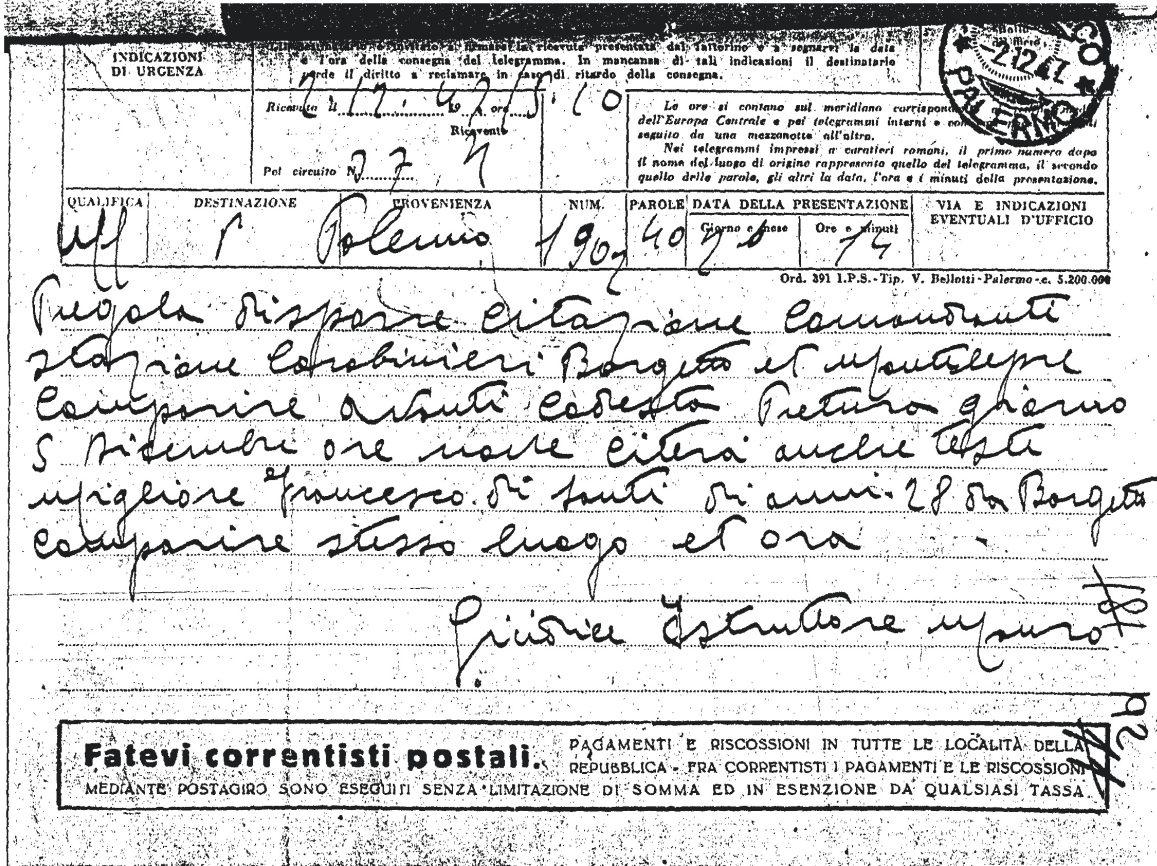 INDICAZIONI
DI URGENZA
e l'ora della consegna del telegramma. In mancanza di tali indicazioni il destinatario
perde il diritto a reclamare in caso di ritardo della consegna.
-2.12.47
PALERMO
Ricevuto il 2 12. 47 a ore 15.10
Ricevente
Pel circuito N. 27
Le ore si contano sul meridiano
dell'Europa Centrale e pei telegrammi interni e
seguito da una mezzanotte all'altra.
Nei telegrammi impressi a caratteri romani, il primo numero dopo
il nome del luogo di origine rappresenta quello del telegramma, il secondo
quello delle parole, gli altri la data, l'ora e i minuti della presentazione.
QUALIFICA DESTINAZIONE PROVENIENZA NUM. PAROLE DATA DELLA PRESENTAZIONE VIA E INDICAZIONI
EVENTUALI D'UFFICIO
Giorno e mese Ore e minuti
Uff P Palermo 40 14
Ord. 391 I.P.S. - Tip. V. Bellotti - Palermo - c. 5.200.000
Pregola disporre citazione Comandanti
stazione Carabinieri Borgetto et Montelepre
Comparire avanti Codesta Pretura giorno
5 dicembre ore nove citerà anche teste
Migliore Francesco di Santi di anni 28 da Borgetto
comparire stesso luogo et ora
Giudice Istruttore Mauro
Fatevi correntisti postali. PAGAMENTI E RISCOSSIONI IN TUTTE LE LOCALITÀ DELLA
REPUBBLICA - FRA CORRENTISTI I PAGAMENTI E LE RISCOSSIONI
MEDIANTE POSTAGIRO SONO ESEGUITI SENZA LIMITAZIONE DI SOMMA ED IN ESENZIONE DA QUALSIASI TASSA.